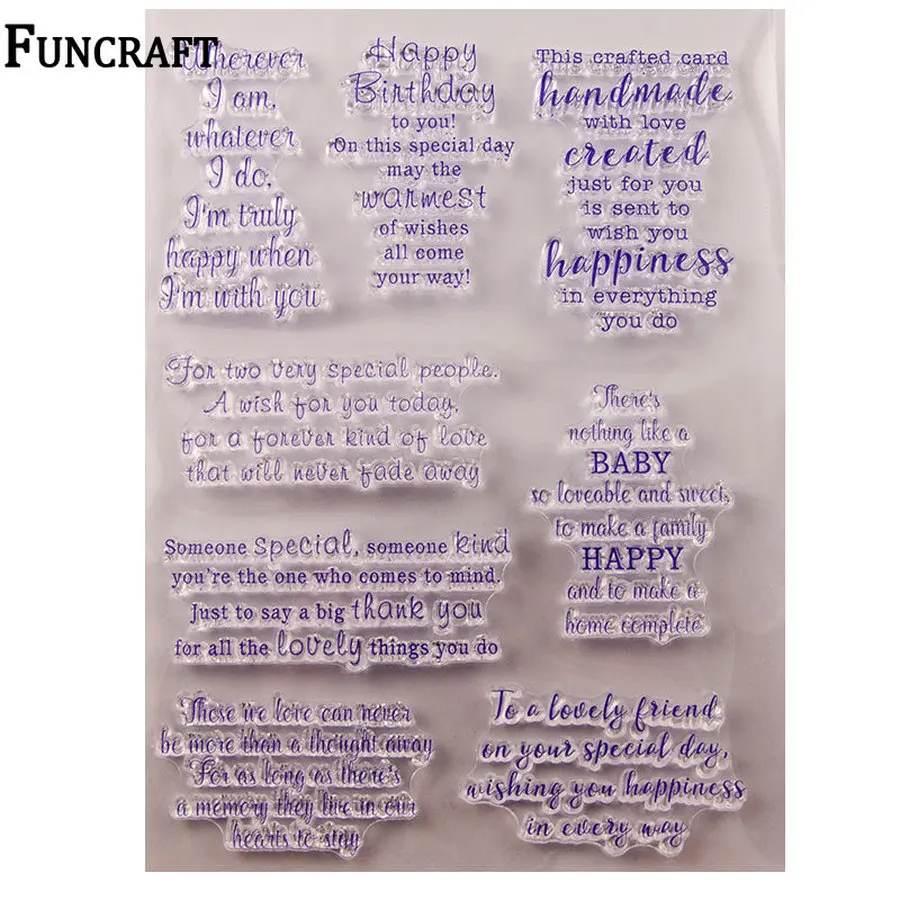 FUNCRAFT
Wherever
I am,
whatever
I do,
I'm truly
happy when
I'm with you
Happy
Birthday
to you!
On this special day
may the
warmest
of wishes
all come
your way!
This crafted card
handmade
with love
created
just for you
is sent to
wish you
happiness
in everything
you do
For two very special people.
A wish for you today,
for a forever kind of love
that will never fade away
There's
nothing like a
BABY
so loveable and sweet,
to make a family
HAPPY
and to make a
home complete
Someone special, someone kind
you're the one who comes to mind.
Just to say a big thank you
for all the lovely things you do
Those we love can never
be more than a thought away
For as long as there's
a memory they live in our
hearts to stay
To a lovely friend
on your special day,
wishing you happiness
in every way